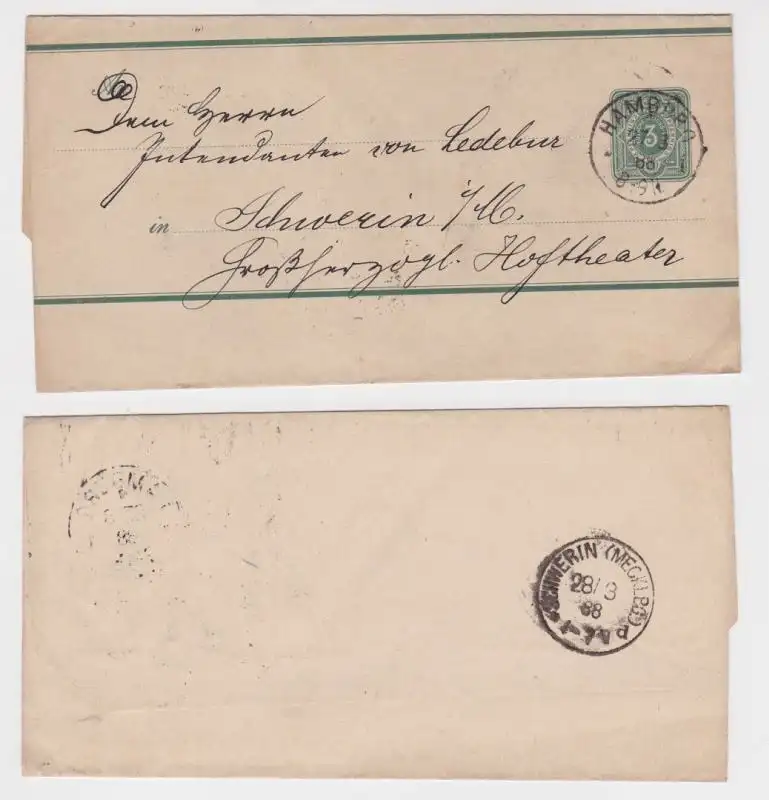 Dem Herrn
Intendanten von Ledebur
in Schwerin i/M.
Großherzogl. Hoftheater
HAMBURG
3
88
SCHWERIN (MECKLBG)
28/3
88